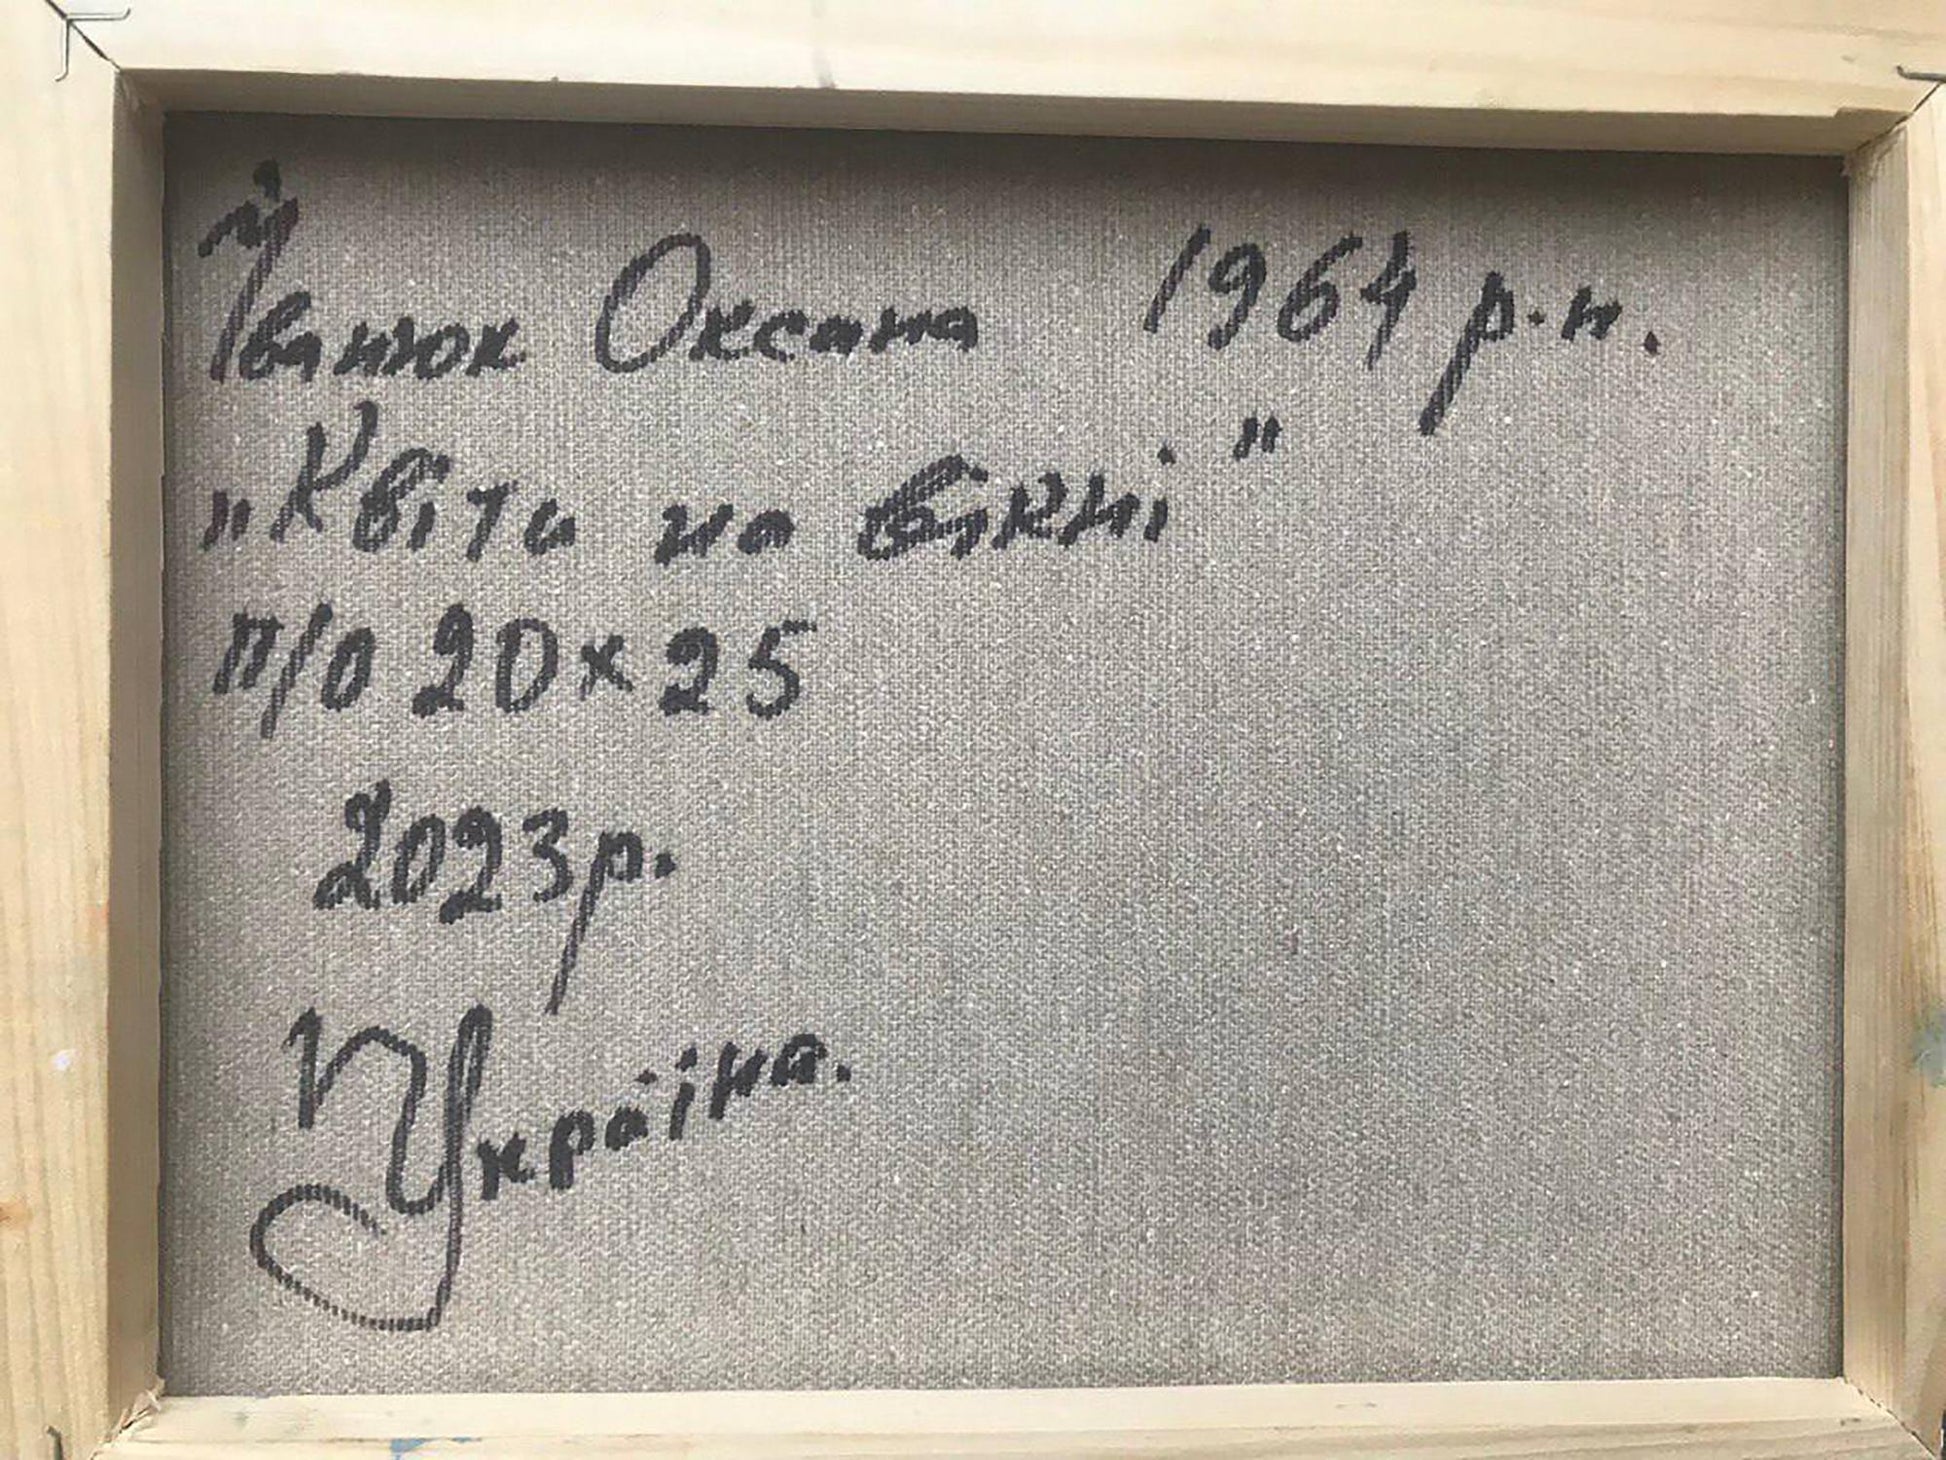 Іванюк Оксана 1964 р.н.
„Квіти на вікні"
п/о 20х25
2023р.
Україна.